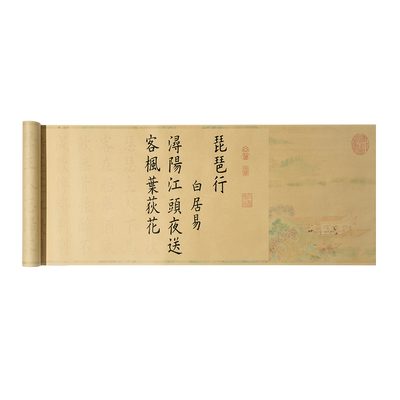 琵琶行
白居易
潯陽江頭夜送
客楓葉荻花